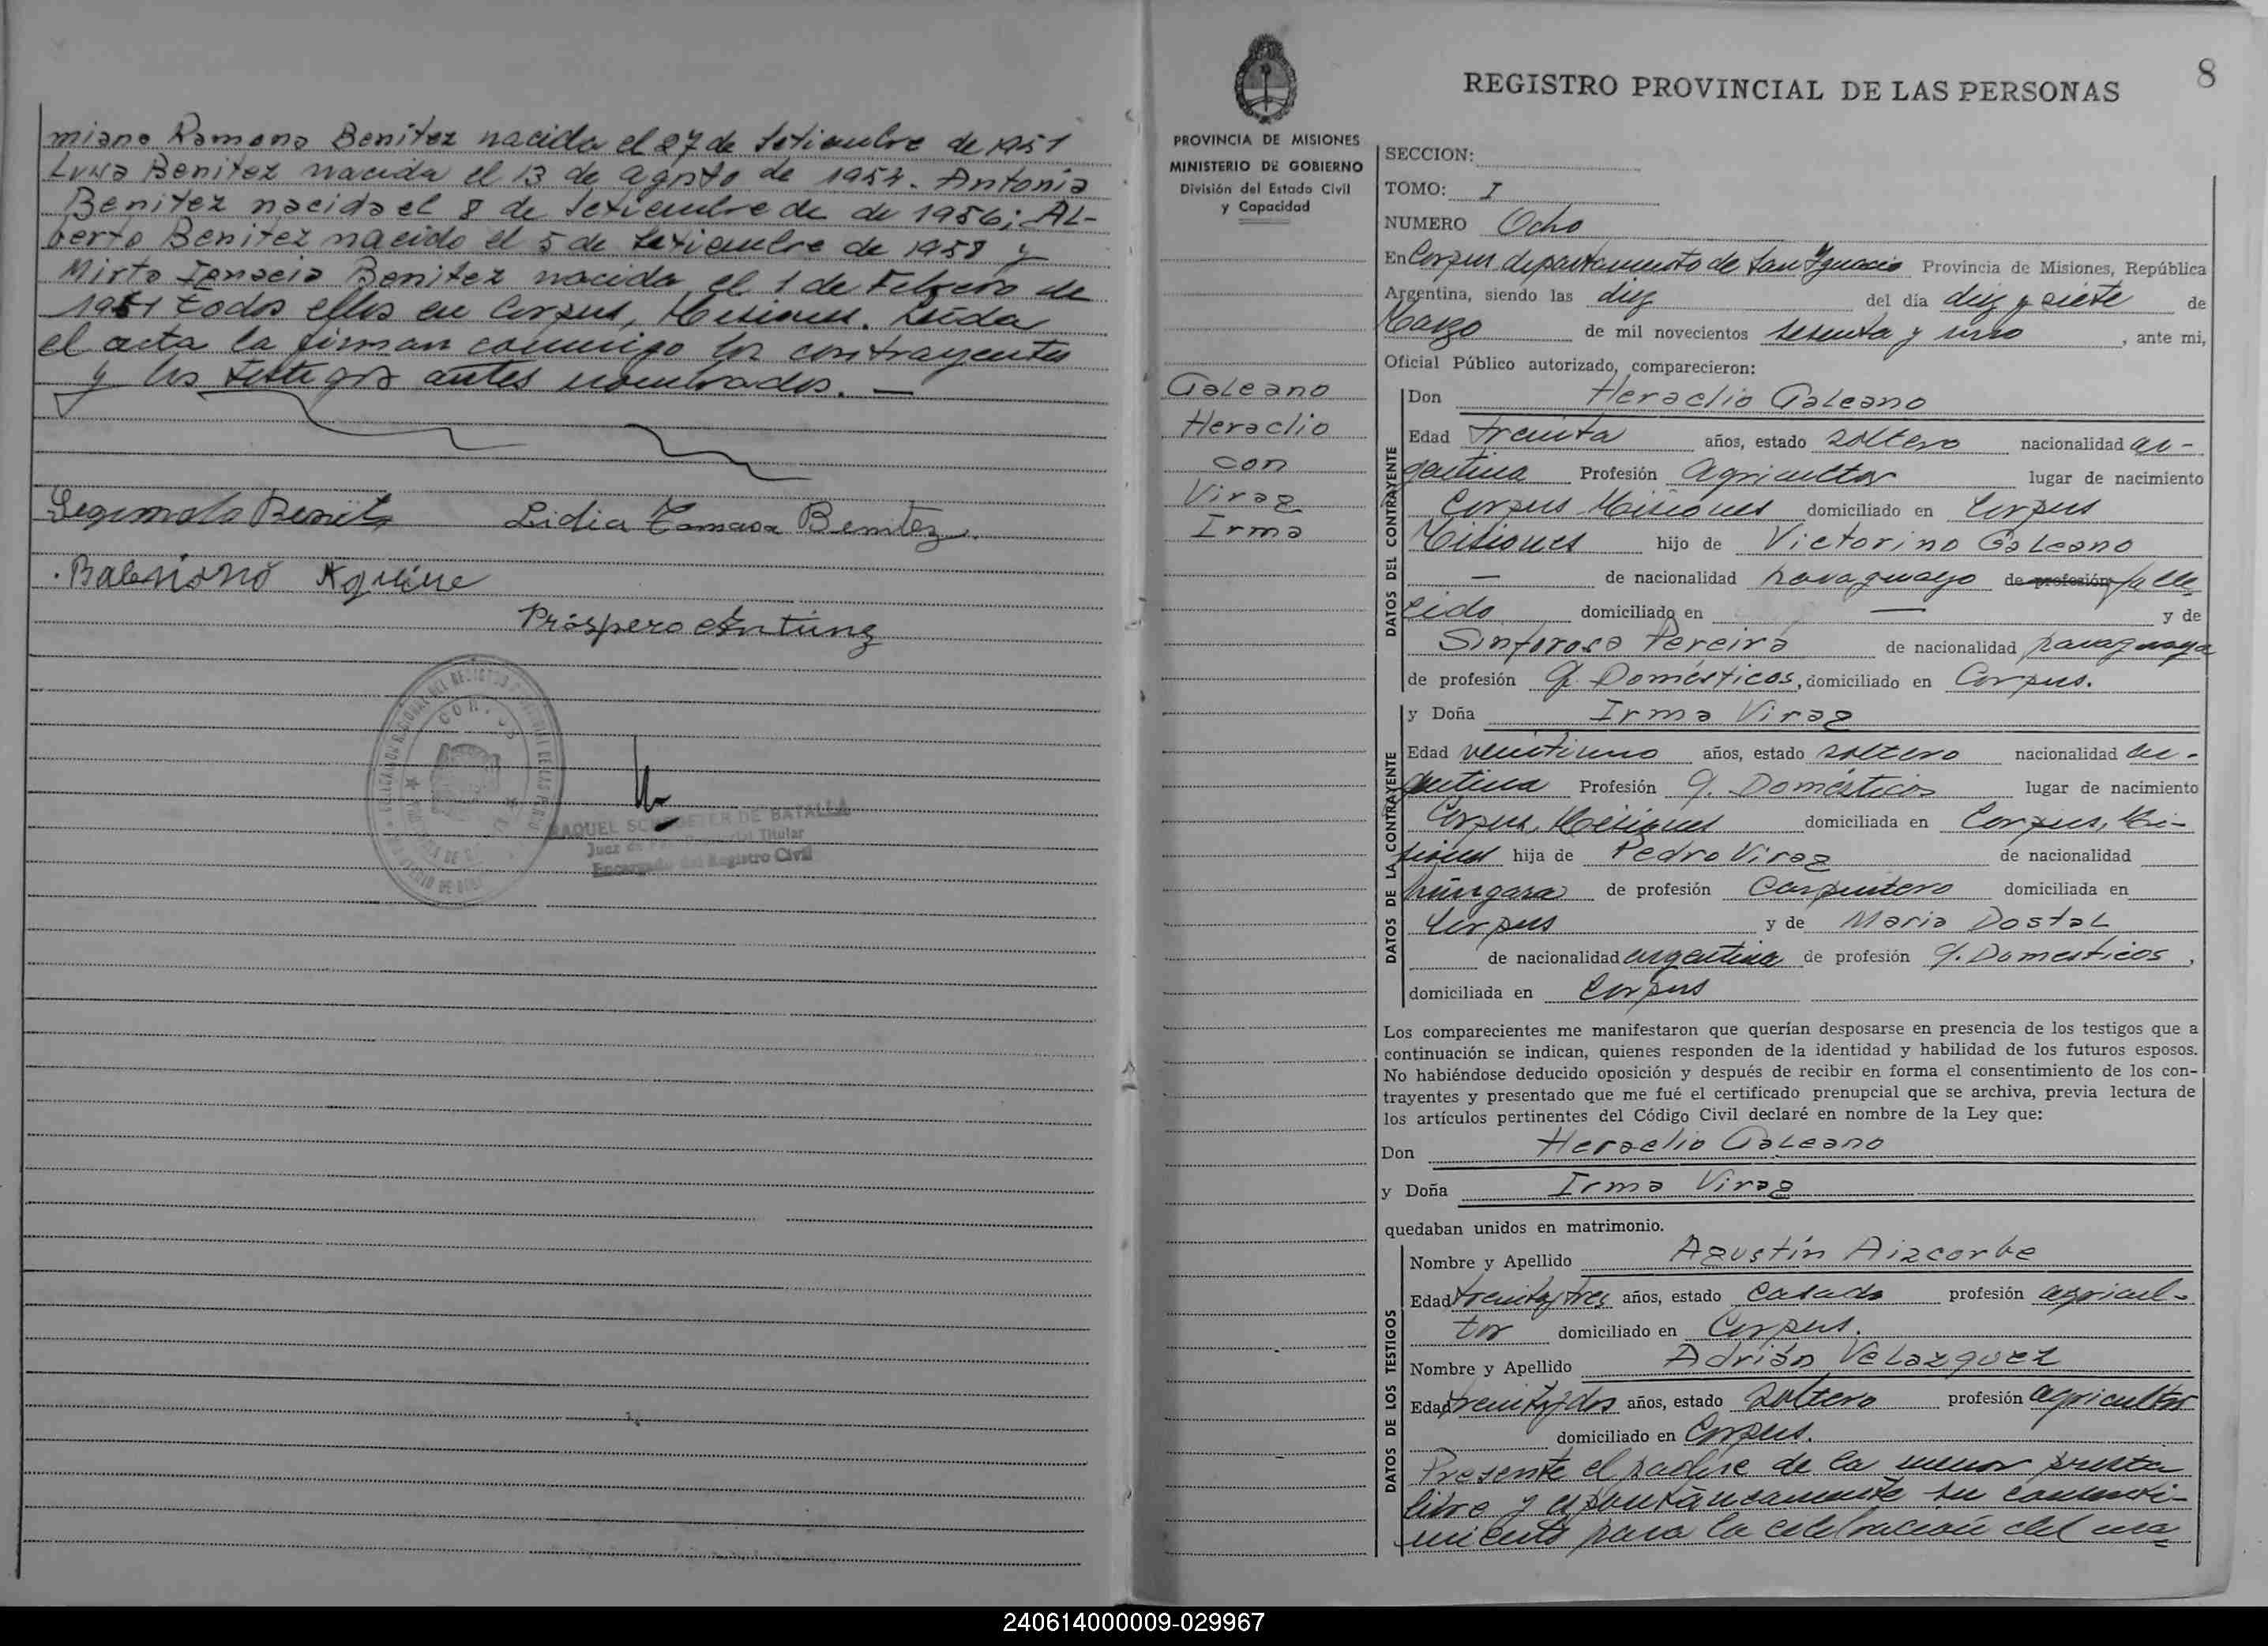 miano Ramona Benitez nacida el 27 de Setiembre de 1951
Luisa Benitez nacida el 13 de agosto de 1954. Antonia
Benitez nacida el 8 de Setiembre de de 1956; AL-
berto Benitez nacido el 5 de Setiembre de 1958 y
Mirta Ignacia Benitez nacida el 1 de Febrero de
1961 todos ellos en Corpus, Misiones. Leída
el acta la firman conmigo los contrayentes
y los testigos antes nombrados. —
Segundo Benitez Lidia Tomasa Benitez.
Baleriano Aguirre
Próspero Antúnz
RAQUEL SCHROETER DE BATALLA
Juez de Titular
Encargado del Registro Civil
8
REGISTRO PROVINCIAL DE LAS PERSONAS
PROVINCIA DE MISIONES
MINISTERIO DE GOBIERNO
División del Estado Civil
y Capacidad
Galeano
Heraclio
con
Virag
Irma
SECCION:
TOMO: I
NUMERO Ocho
En Corpus departamento de San Ignacio Provincia de Misiones, República
Argentina, siendo las diez del día diez y siete de
Marzo de mil novecientos sesenta y uno, ante mi,
Oficial Público autorizado, comparecieron:
DATOS DEL CONTRAYENTE
Don Heraclio Galeano
Edad treinta años, estado soltero nacionalidad ar-
gentina Profesión Agricultor lugar de nacimiento
Corpus Misiones domiciliado en Corpus
Misiones hijo de Victorino Galeano
— de nacionalidad paraguayo de profesión falle
cido domiciliado en — y de
Sinforosa Pereira de nacionalidad paraguaya
de profesión Q. Domésticos, domiciliado en Corpus.
DATOS DE LA CONTRAYENTE
y Doña Irma Virag
Edad veintiuno años, estado soltero nacionalidad ar-
gentina Profesión q. Domésticos lugar de nacimiento
Corpus, Misiones domiciliada en Corpus, Mi-
siones hija de Pedro Virag de nacionalidad
húngara de profesión Carpintero domiciliada en
Corpus y de Maria Dostal
de nacionalidad argentina de profesión q. Domesticos,
domiciliada en Corpus
Los comparecientes me manifestaron que querían desposarse en presencia de los testigos que a
continuación se indican, quienes responden de la identidad y habilidad de los futuros esposos.
No habiéndose deducido oposición y después de recibir en forma el consentimiento de los con-
trayentes y presentado que me fué el certificado prenupcial que se archiva, previa lectura de
los artículos pertinentes del Código Civil declaré en nombre de la Ley que:
Don Heraclio Galeano
y Doña Irma Virag
quedaban unidos en matrimonio.
DATOS DE LOS TESTIGOS
Nombre y Apellido Agustín Aizcorbe
Edad treintaytres años, estado casado profesión agricul-
tor domiciliado en Corpus.
Nombre y Apellido Adrián Velazquez
Edad treintaydos años, estado soltero profesión agricultor
domiciliado en Corpus.
Presente el padre de la menor presta
libre y espontáneamente su consenti-
miento para la celebración del ma=
240614000009-029967